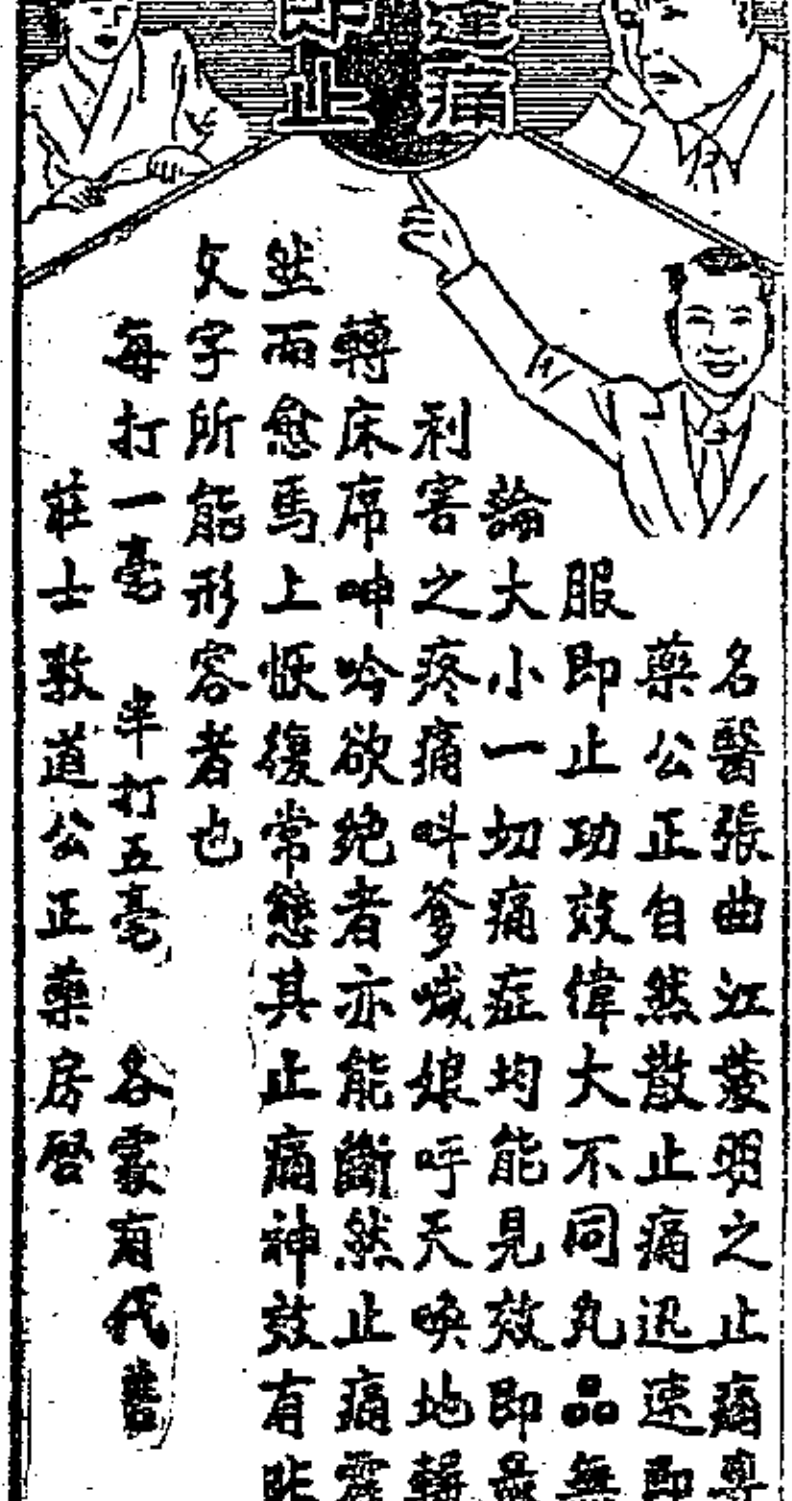 逢痛
即止
名醫張曲江發明之止痛專
藥公正自然散止痛迅速即
服即止功效偉大不同丸品無
論大小一切痛症均能見效即最
利害之疼痛叫爹喊娘呼天喚地輾
轉床席呻吟欲絶者亦能斷然止痛霍
然而愈馬上恢復常態其止痛神效有非
文字所能形容者也
每打一毫 半打五毫 各處有代售
莊士敦道公正藥房啓